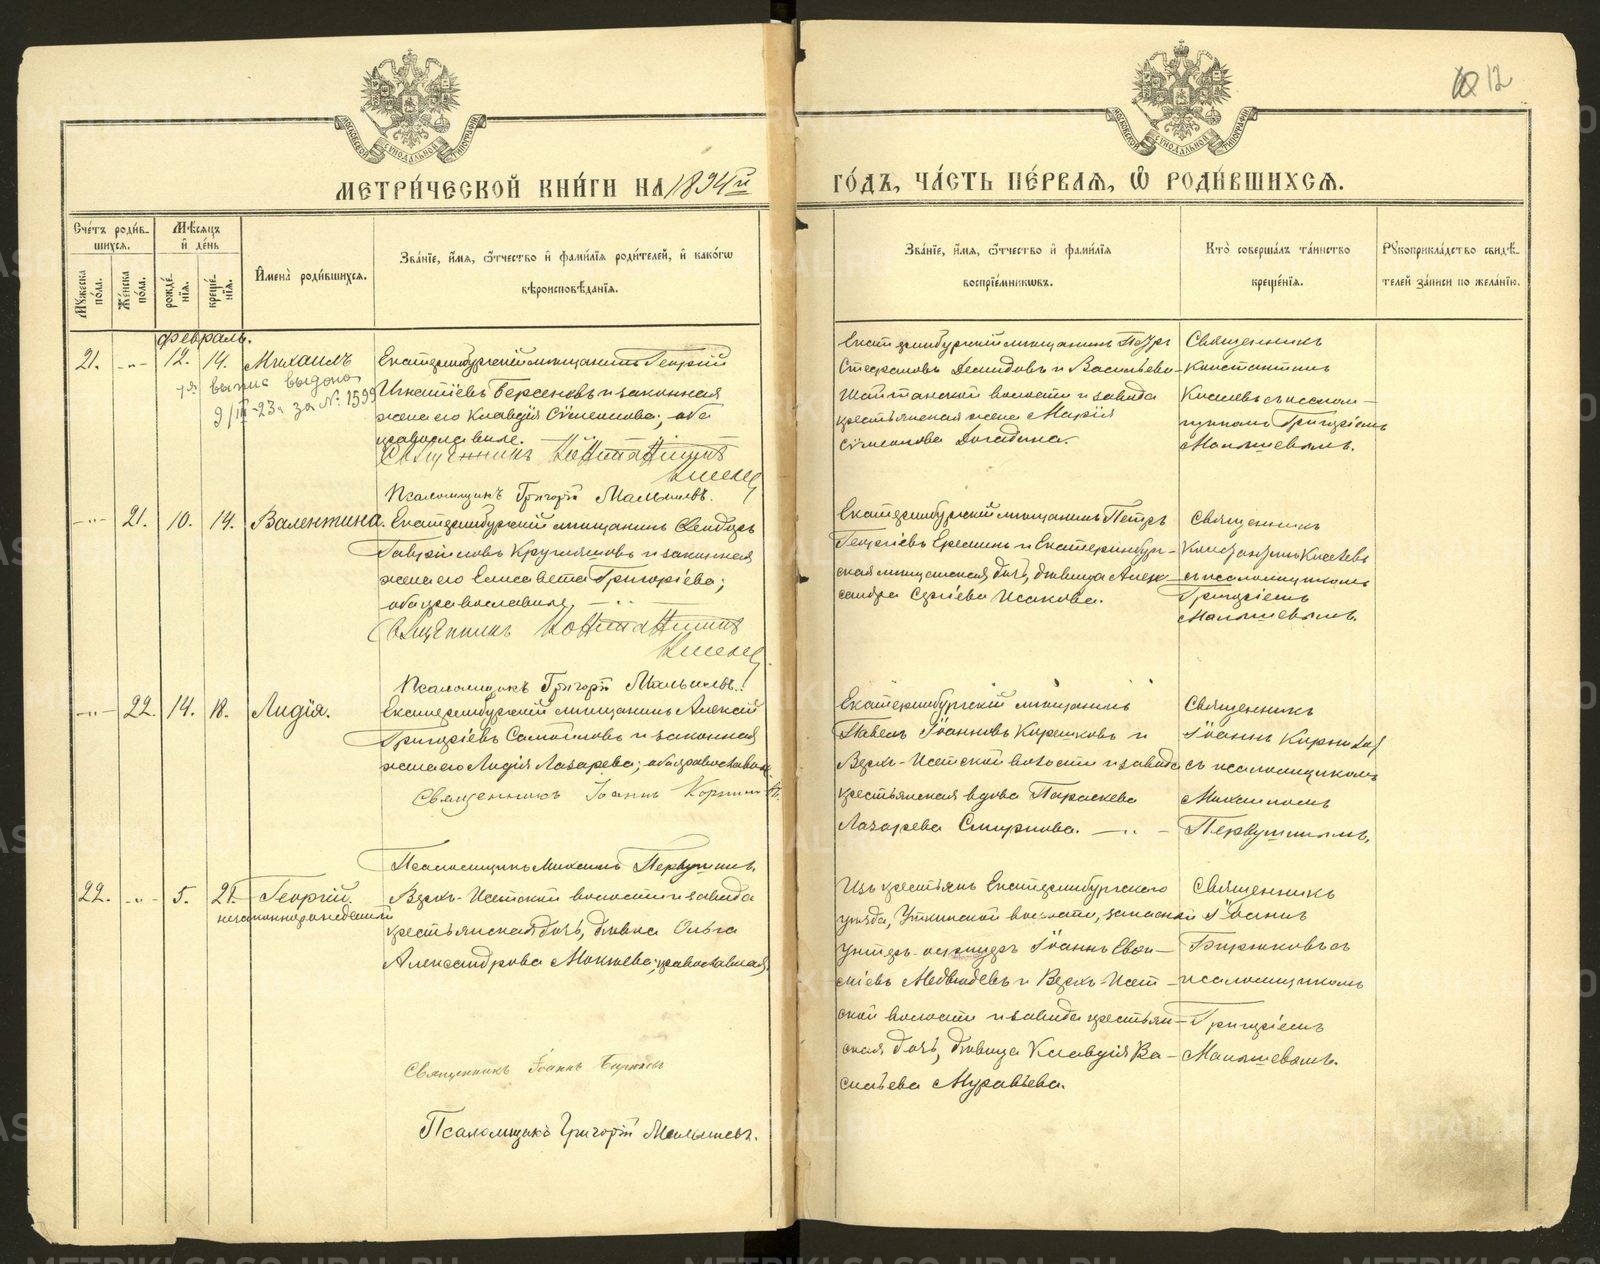 12
МЕТРИ́ЧЕСКОЙ КНИ́ГИ НА 1894й ГО́ДЪ, ЧА́СТЬ ПЕ́РВАЯ, Ѽ РОДИ́ВШИХСЯ.
МОСКОВСКОЙ СУНОДАЛЬНОЙ ТИПОГРАФІИ
МОСКОВСКОЙ СУНОДАЛЬНОЙ ТИПОГРАФІИ
Сче́тъ роди́в-
шихся.
Мꙋжеска по́ла.
Же́нска по́ла.
Мѣ́сяцъ
и҆ де́нь
рожде́-
нїя.
креще́-
нїя.
И҆мена̀ роди́вшихся.
Зва́нїе, и҆́мя, ѻ҆́тчество и҆ фами́лїя роди́телей, и҆ како́гѡ
вѣроисповѣ́данїя.
Зва́нїе, и҆́мя, ѻ҆́тчество и҆ фами́лїя
воспрїе́мникѡвъ.
Кто̀ соверша́лъ та́инство
креще́нїя.
Рꙋкоприкла́дство свидѣ́-
телей за́писи по жела́нїю.
февраль.
21. -„- 12. 14. Михаилъ
Екатеринбургскій мѣщанинъ Георгій
Игнатіевъ Берсеневъ и законная
жена его Клавдія Симеонова; оба
православные.
Священникъ Константинъ
Псаломщикъ Григорій Малышевъ.
Екатеринбургскій мѣщанинъ Петръ
Стефановъ Демидовъ и Васильево-
Шайтанской волости и завода
крестьянская жена Марія
Симеонова
Священникъ
Константинъ
съ псалом-
щикомъ Григоріемъ
Малышевымъ.
выпис выдана
9/III-23г за №. 1599
-„- 21. 10. 14. Валентина.
Екатеринбургскій мѣщанинъ Ѳеодоръ
Гавріиловъ Кругляшовъ и законная
жена его Елисавета Григоріева;
оба православные.
Священникъ Константинъ
Псаломщикъ Григорій Малышевъ.
Екатеринбургскій мѣщанинъ Петръ
Георгіевъ Ереминъ и Екатеринбург-
ская мѣщанская дочь, дѣвица Алек-
сандра Сергіева Исакова.
Священникъ
Константинъ
съ псаломщикомъ
Григоріемъ
Малышевымъ.
-„- 22. 14. 18. Лидія.
Екатеринбургскій мѣщанинъ Алексій
Григоріевъ Самойловъ и законная
жена его Лидія Лазарева; оба православн.
Священникъ Іоаннъ
Псаломщикъ Михаилъ Первушинъ.
Екатеринбургскій мѣщанинъ
Павелъ Іоанновъ Корешковъ и
Верхъ-Исетской волости и завода
крестьянская вдова Параскева
Лазарева Смирнова.
Священникъ
Іоаннъ
съ псаломщикомъ
Михаиломъ
Первушинымъ.
22. -„- 5. 21. Георгій.
незаконнорожденный
Верхъ-Исетской волости и завода
крестьянская дочь, дѣвка Ольга
Александрова Мокѣева; православная.
Священникъ Іоаннъ Бирюковъ
Псаломщикъ Григорій Малышевъ.
Изъ крестьянъ Екатеринбургскаго
уѣзда, Уткинской волости, запасной
унтеръ-офицеръ Іоаннъ Евѳи-
міевъ Медвѣдевъ и Верхъ-Исет-
ской волости и завода крестьян-
ская дочь, дѣвица Клавдія Ва-
сильева Муравьева.
Священникъ
Іоаннъ
Бирюковъ съ
псаломщикомъ
Григоріемъ
Малышевымъ.